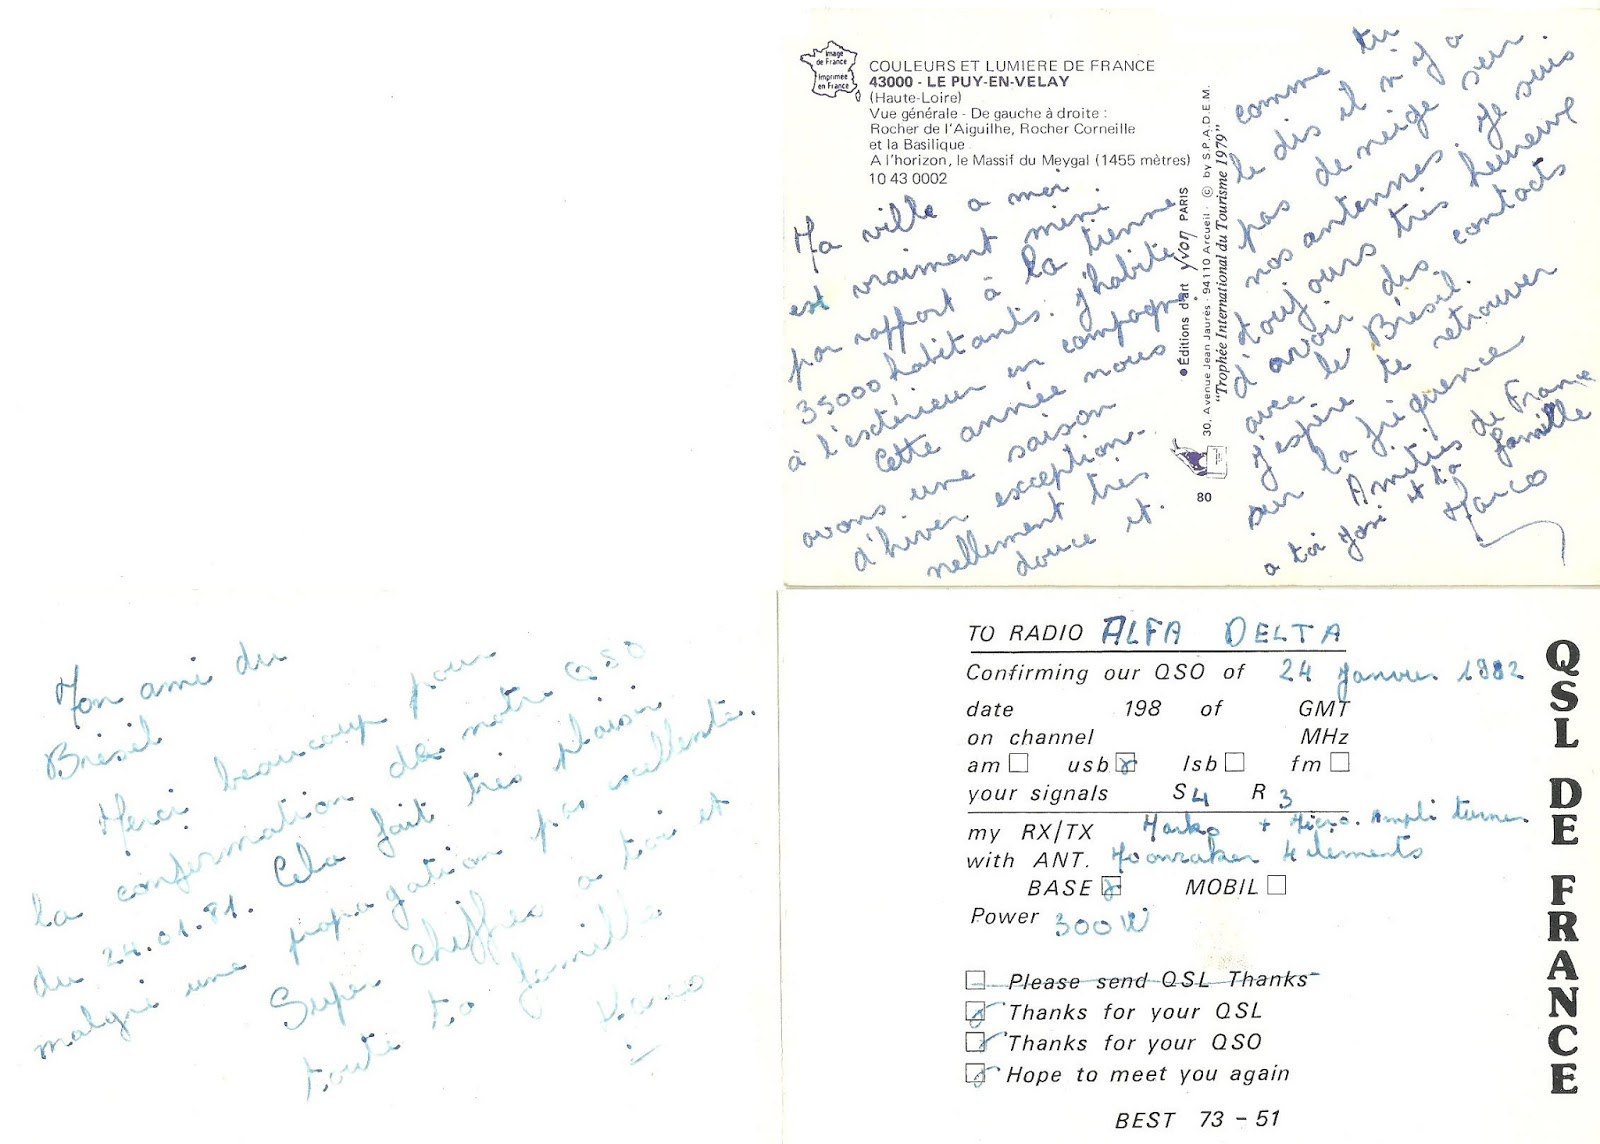 Image
de France
Imprimée
en France
COULEURS ET LUMIERE DE FRANCE
43000 - LE PUY-EN-VELAY
(Haute-Loire)
Vue générale - De gauche à droite :
Rocher de l'Aiguilhe, Rocher Corneille
et la Basilique
A l'horizon, le Massif du Meygal (1455 mètres)
10 43 0002
Ma ville a moi
est vraiment mini
par rapport à la tienne
35000 habitants. J'habite
à l'extérieur en campagne
Cette année nous
avons une saison
d'hiver exception-
nellement très
douce et.
● Éditions d'art yvon PARIS
30, Avenue Jean Jaurès - 94110 Arcueil - © by S.P.A.D.E.M.
"Trophée International du Tourisme 1979"
80
comme tu
le dis il n'y a
pas de neige sur
nos antennes. Je suis
toujours très heureux
d'avoir des contacts
avec le Brésil.
J'espère te retrouver
sur la fréquence
Amitiés de France
a toi et ta famille
Marco
Mon ami du
Brésil
Merci beaucoup pour
la confirmation de notre QSO
du 24.01.81. Cela fait très plaisir
malgré une propagation pas excellente.
Super chiffres a toi et
toute ta famille
Marco
TO RADIO ALFA DELTA
Confirming our QSO of 24 Janvier 1982
date 198 of GMT
on channel MHz
am usb lsb fm
your signals S 4 R 3
my RX/TX Marko + Micro. Ampli turner
with ANT. Moonraker 4 elements
BASE MOBIL
Power 300W
Please send QSL Thanks
Thanks for your QSL
Thanks for your QSO
Hope to meet you again
BEST 73 - 51
QSL DE FRANCE